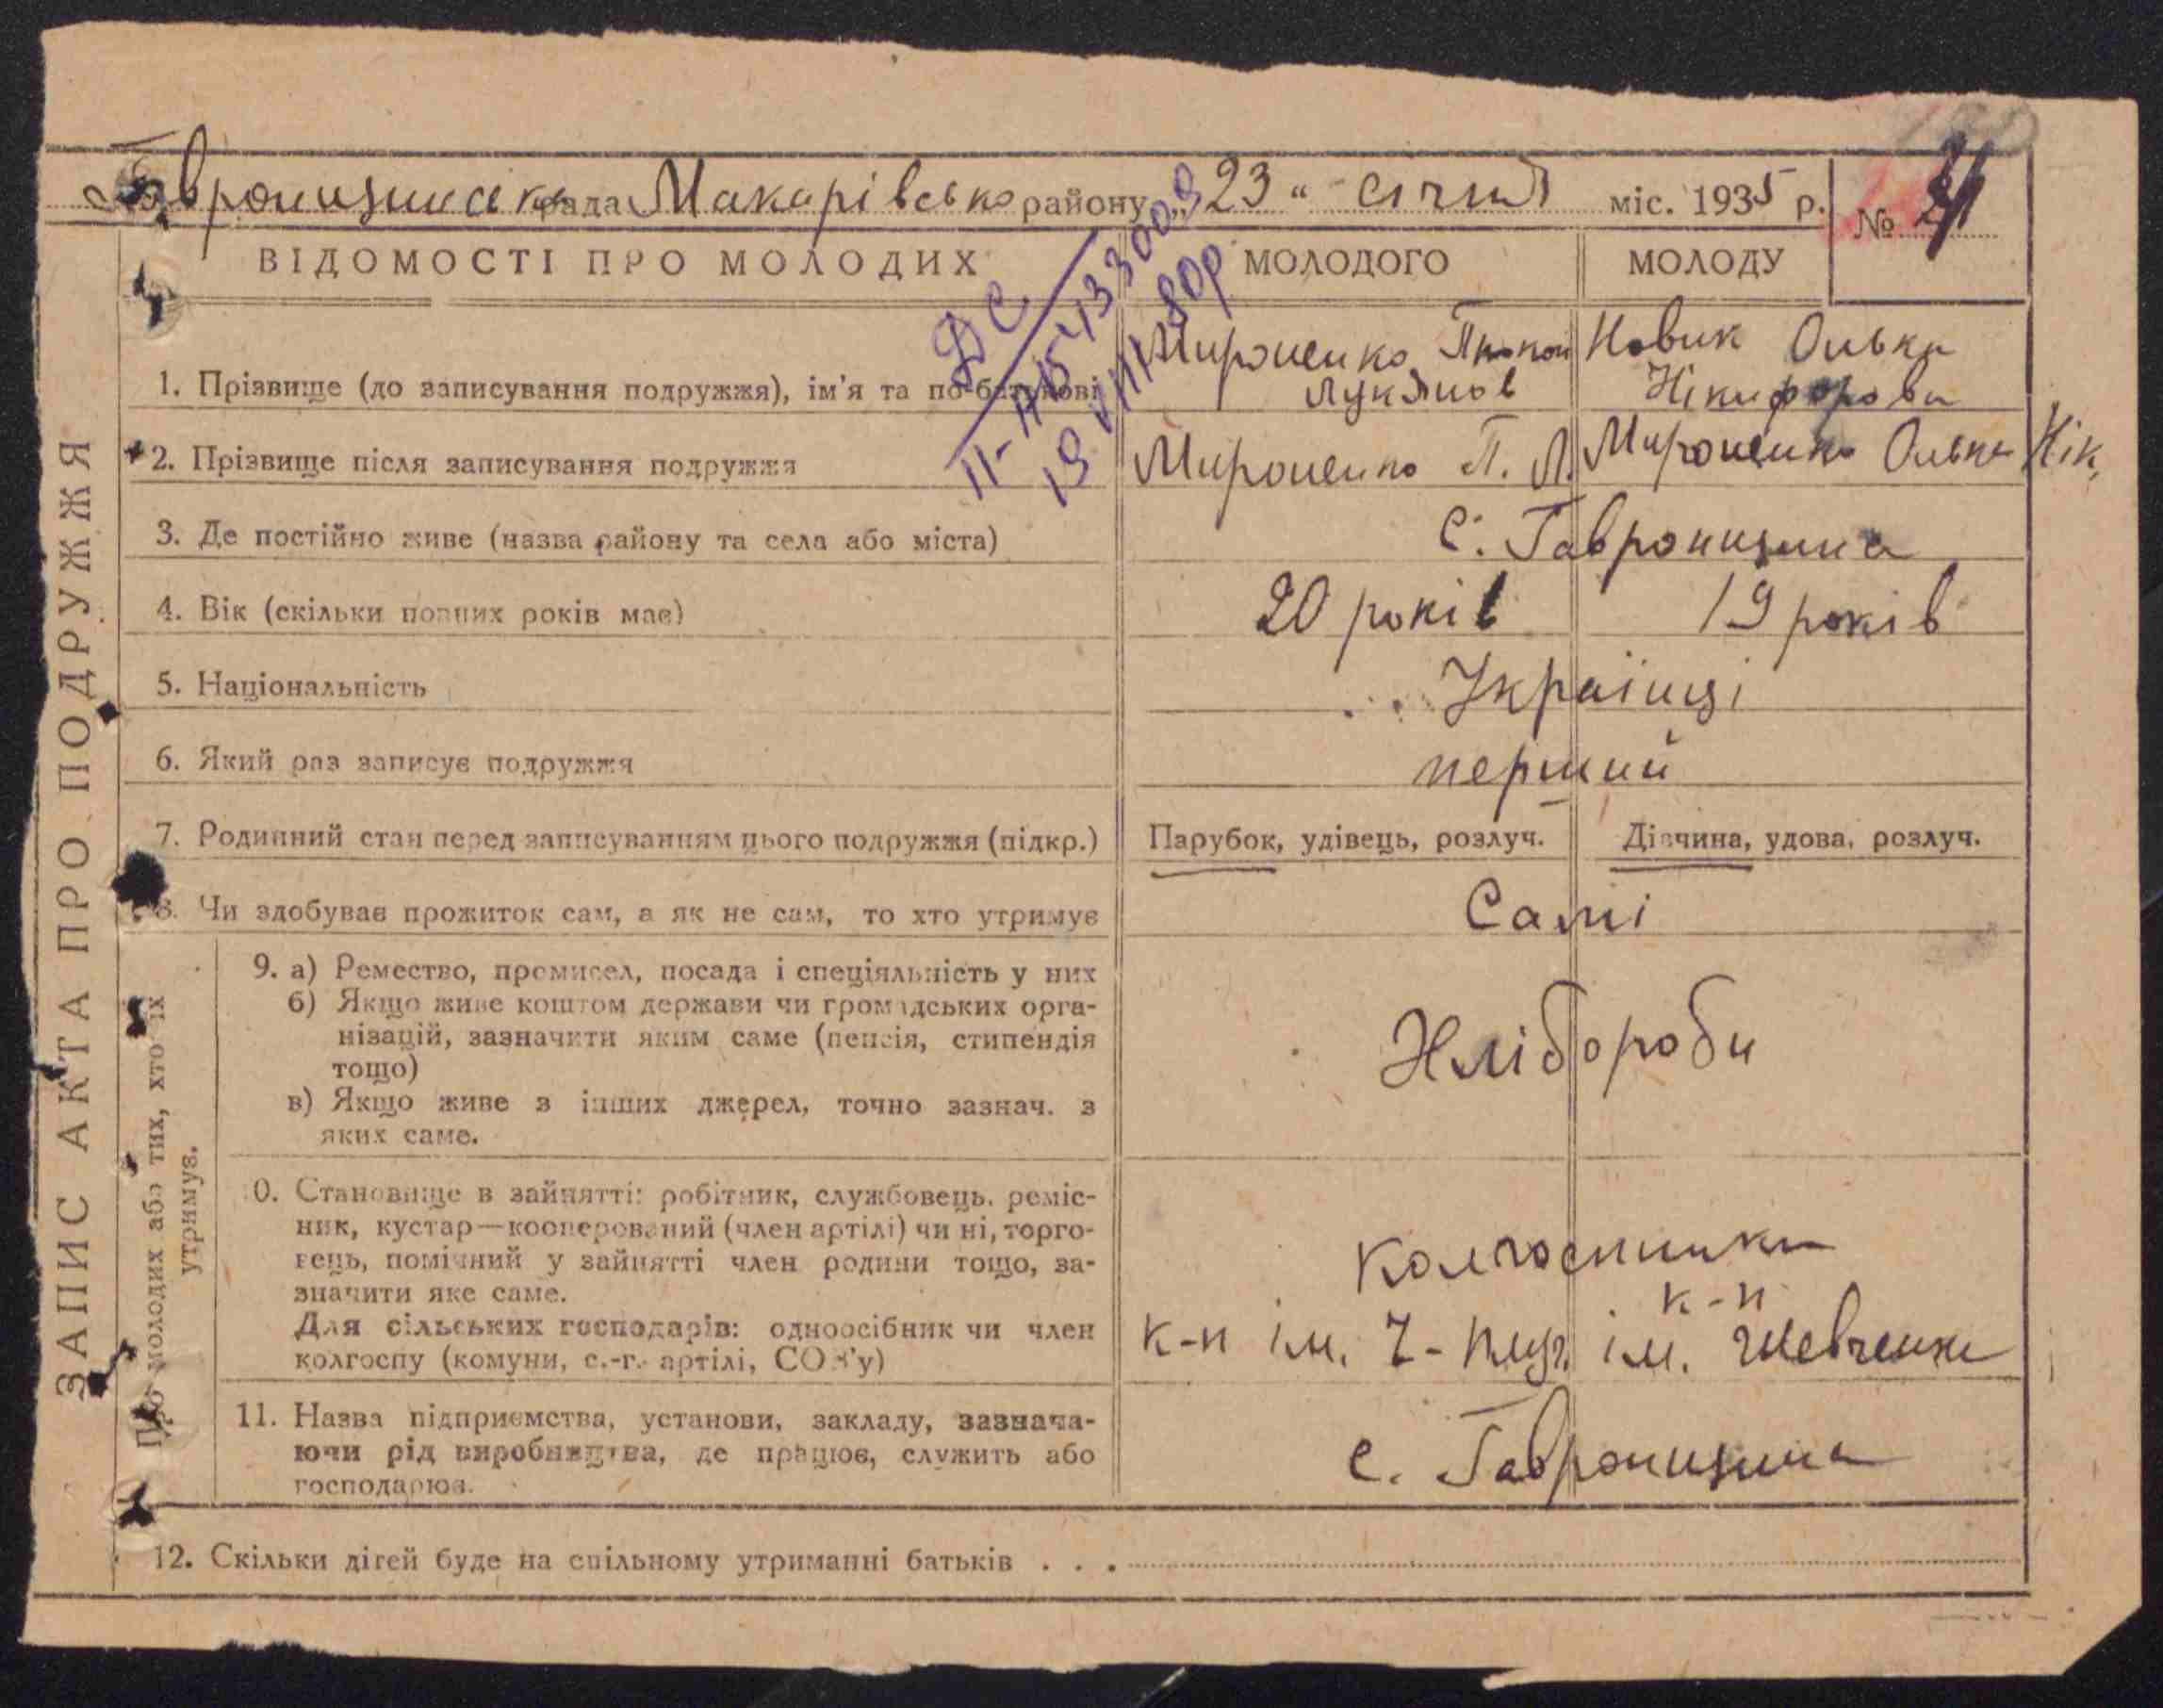 Гавронщинська рада Макарівсько району „23“ січня міс. 1935 р. №
ВІДОМОСТІ ПРО МОЛОДИХ МОЛОДОГО МОЛОДУ
ЗАПИС АКТА ПРО ПОДРУЖЖЯ
1. Прізвище (до записування подружжя), ім'я та по-батькові
Мироненко
Лукянов
Новик Олька
Нікифорова
2. Прізвище після записування подружжя Мироненко П. Л. Мироненко Олька Нік.
3. Де постійно живе (назва району та села або міста) с. Гавронщина
4. Вік (скільки повних років має) 20 років 19 років
5. Національність Українці
6. Який раз записує подружжя перший
7. Родинний стан перед записуванням цього подружжя (підкр.) Парубок, удівець, розлуч. Дівчина, удова, розлуч.
8. Чи здобуває прожиток сам, а як не сам, то хто утримує Самі
Про молодих або тих, хто їх
утримує.
9. а) Ремество, промисел, посада і спеціяльність у них
б) Якщо живе коштом держави чи громадських орга-
нізацій, зазначити яким саме (пенсія, стипендія
тощо)
в) Якщо живе з інших джерел, точно зазнач. з
яких саме.
Хлібороби
0. Становище в зайнятті: робітник, службовець, реміс-
ник, кустар—кооперований (член артілі) чи ні, торго-
вець, помічний у зайнятті член родини тощо, за-
значити яке саме.
Для сільських господарів: одноосібник чи член
колгоспу (комуни, с.-г. артілі, СОЗ'у)
колгоспники
к-п
к-п ім. ім. Шевченка
11. Назва підприємства, установи, закладу, зазнача-
ючи рід виробництва, де працює, служить або
господарює.
с. Гавронщина
12. Скільки дітей буде на спільному утриманні батьків . . .